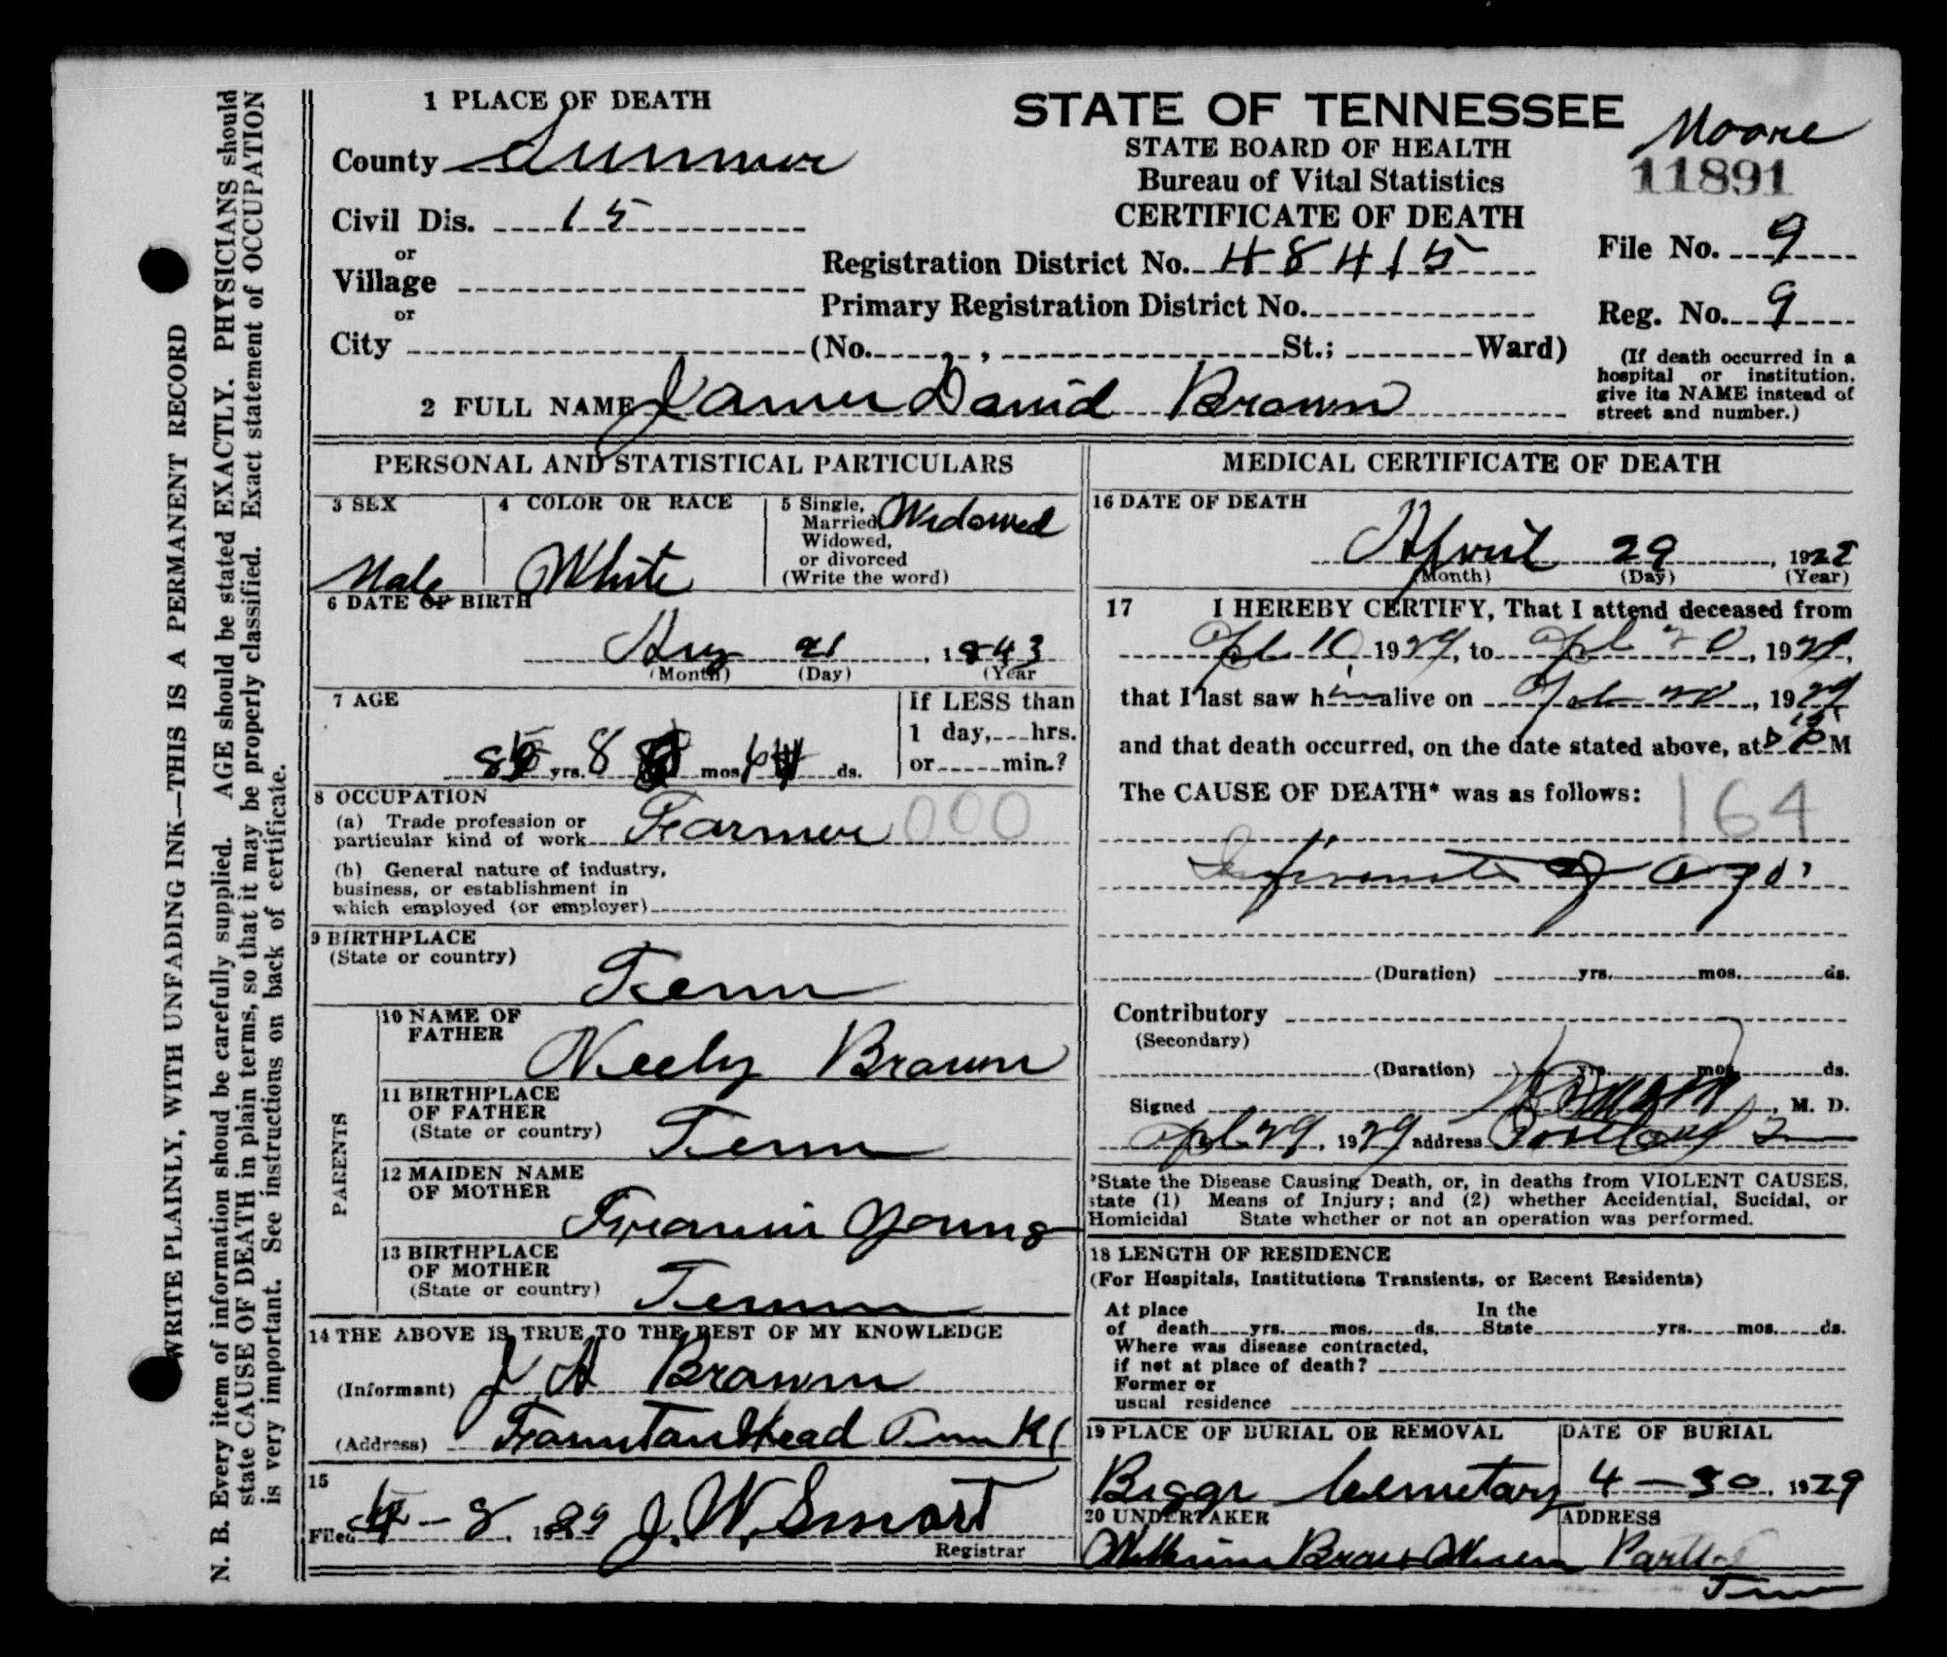 1 PLACE OF DEATH
County Sumner
Civil Dis. 15
or
Village
or
City (No. , St.; Ward)
STATE OF TENNESSEE
STATE BOARD OF HEALTH
Bureau of Vital Statistics
CERTIFICATE OF DEATH
Registration District No. 48415
Primary Registration District No.
Moore
11891
File No. 9
Reg. No. 9
(If death occurred in a
hospital or institution,
give its NAME instead of
street and number.)
2 FULL NAME James David Brown
PERSONAL AND STATISTICAL PARTICULARS
3 SEX
Male
4 COLOR OR RACE
White
5 Single,
Married
Widowed,
or divorced
(Write the word)
Widowed
6 DATE OF BIRTH
Aug 21, 1843
(Month) (Day) (Year
7 AGE
yrs. 8 mos ds.
If LESS than
1 day, hrs.
or min.?
8 OCCUPATION
(a) Trade profession or
particular kind of work Farmer 000
(b) General nature of industry,
business, or establishment in
which employed (or employer)
9 BIRTHPLACE
(State or country)
Tenn
PARENTS
10 NAME OF
FATHER
Neely Brown
11 BIRTHPLACE
OF FATHER
(State or country)
Tenn
12 MAIDEN NAME
OF MOTHER
Young
13 BIRTHPLACE
OF MOTHER
(State or country)
Tenn
14 THE ABOVE IS TRUE TO THE BEST OF MY KNOWLEDGE
(Informant) J A Brown
(Address) Head Tenn R1
15
Filed - 8, 1929 J. W. Smart
Registrar
MEDICAL CERTIFICATE OF DEATH
16 DATE OF DEATH
April 29, 192
(Month) (Day) (Year)
17 I HEREBY CERTIFY, That I attend deceased from
Apl 10, 1929, to Apl 20, 1929,
that I last saw him alive on Apl 20, 1929
and that death occurred, on the date stated above, at M
The CAUSE OF DEATH* was as follows:
164
of age
(Duration) yrs. mos. ds.
Contributory
(Secondary)
(Duration) yrs. mos. ds.
Signed , M. D.
Apl 29, 1929 address Portland
*State the Disease Causing Death, or, in deaths from VIOLENT CAUSES,
state (1) Means of Injury; and (2) whether Accidential, Sucidal, or
Homicidal State whether or not an operation was performed.
18 LENGTH OF RESIDENCE
(For Hospitals, Institutions Transients, or Recent Residents)
At place In the
of death yrs. mos. ds. State yrs. mos. ds.
Where was disease contracted,
if not at place of death?
Former or
usual residence
19 PLACE OF BURIAL OR REMOVAL
Cemetary
DATE OF BURIAL
4-30, 1929
20 UNDERTAKER
ADDRESS
Tenn
WRITE PLAINLY, WITH UNFADING INK—THIS IS A PERMANENT RECORD
N. B. Every item of information should be carefully supplied. AGE should be stated EXACTLY. PHYSICIANS should
state CAUSE OF DEATH in plain terms, so that it may be properly classified. Exact statement of OCCUPATION
is very important. See instructions on back of certificate.